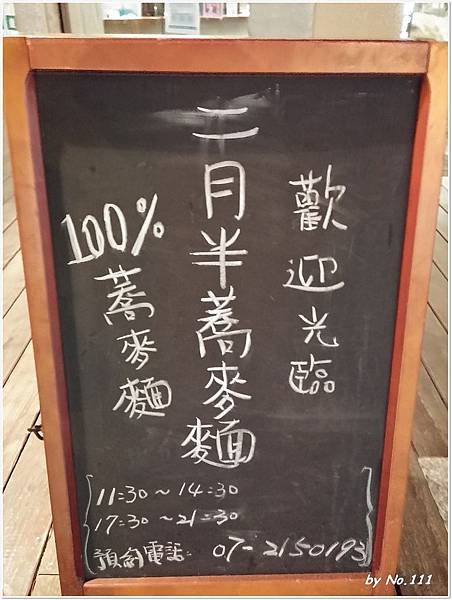 歡迎光臨
二月半蕎麥麵
100%蕎麥麵
11:30~14:30
17:30~21:30
預約電話: 07-2150193
by No.111